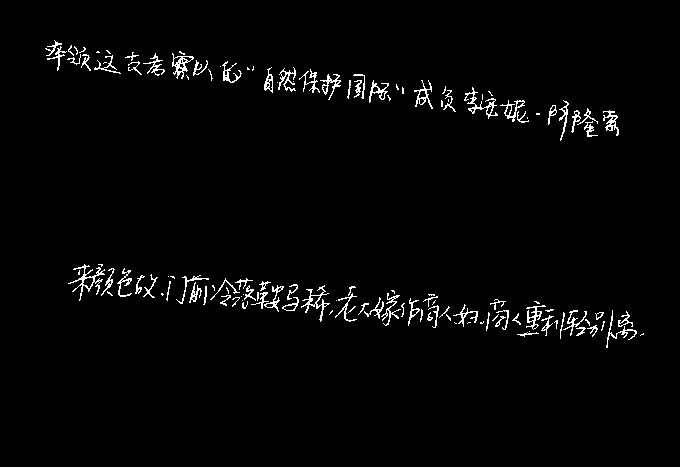 率领这支考察队的“自然保护国际”成员李安妮·阿隆索
来颜色故.门前冷落鞍马稀,老大嫁作商人妇.商人重利轻别离.